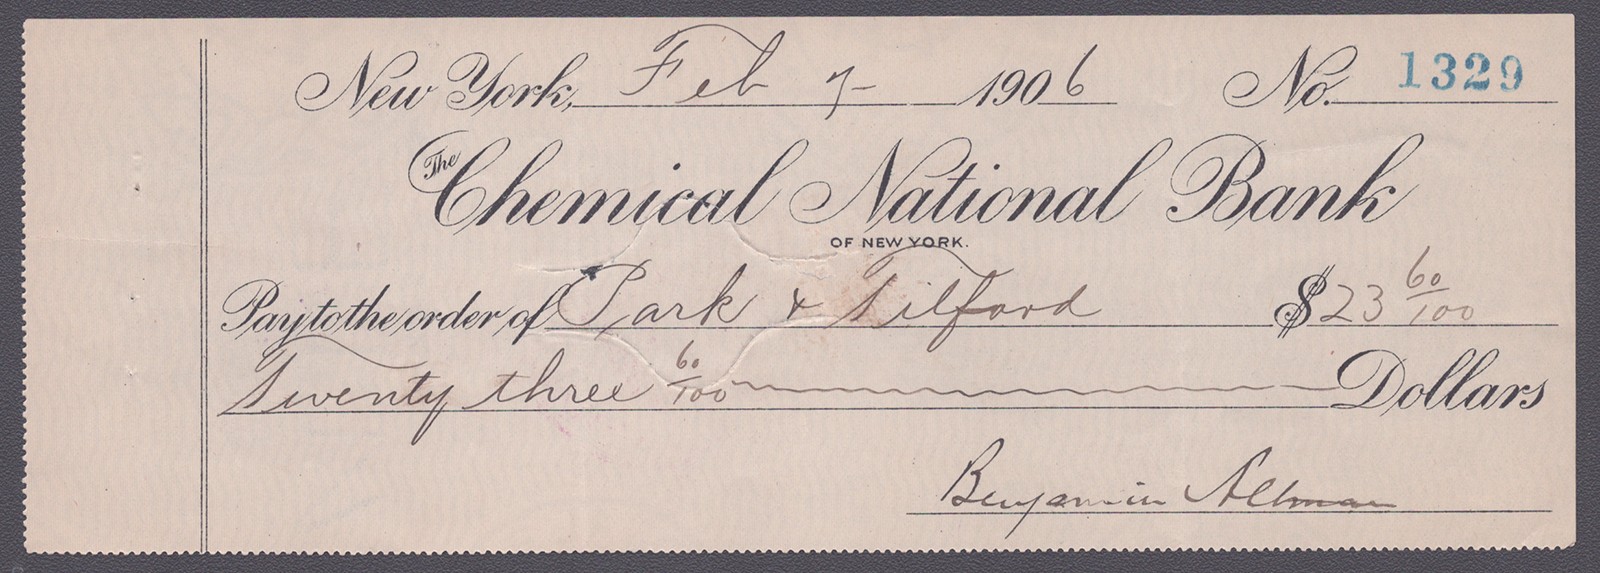 New York, Feb 7- 1906 No. 1329
The Chemical National Bank
OF NEW YORK.
Pay to the order of Park & Tilford $23 60/100
Twenty three 60/100 Dollars
Benjamin Altman